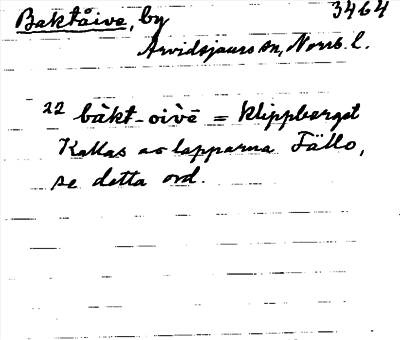 Baktåive, by 3464
Arvidsjaurs sn, Norrb. l.
22 bàkt-oìvē = Klippberget
Kallas av lapparna Fällo,
se detta ord.